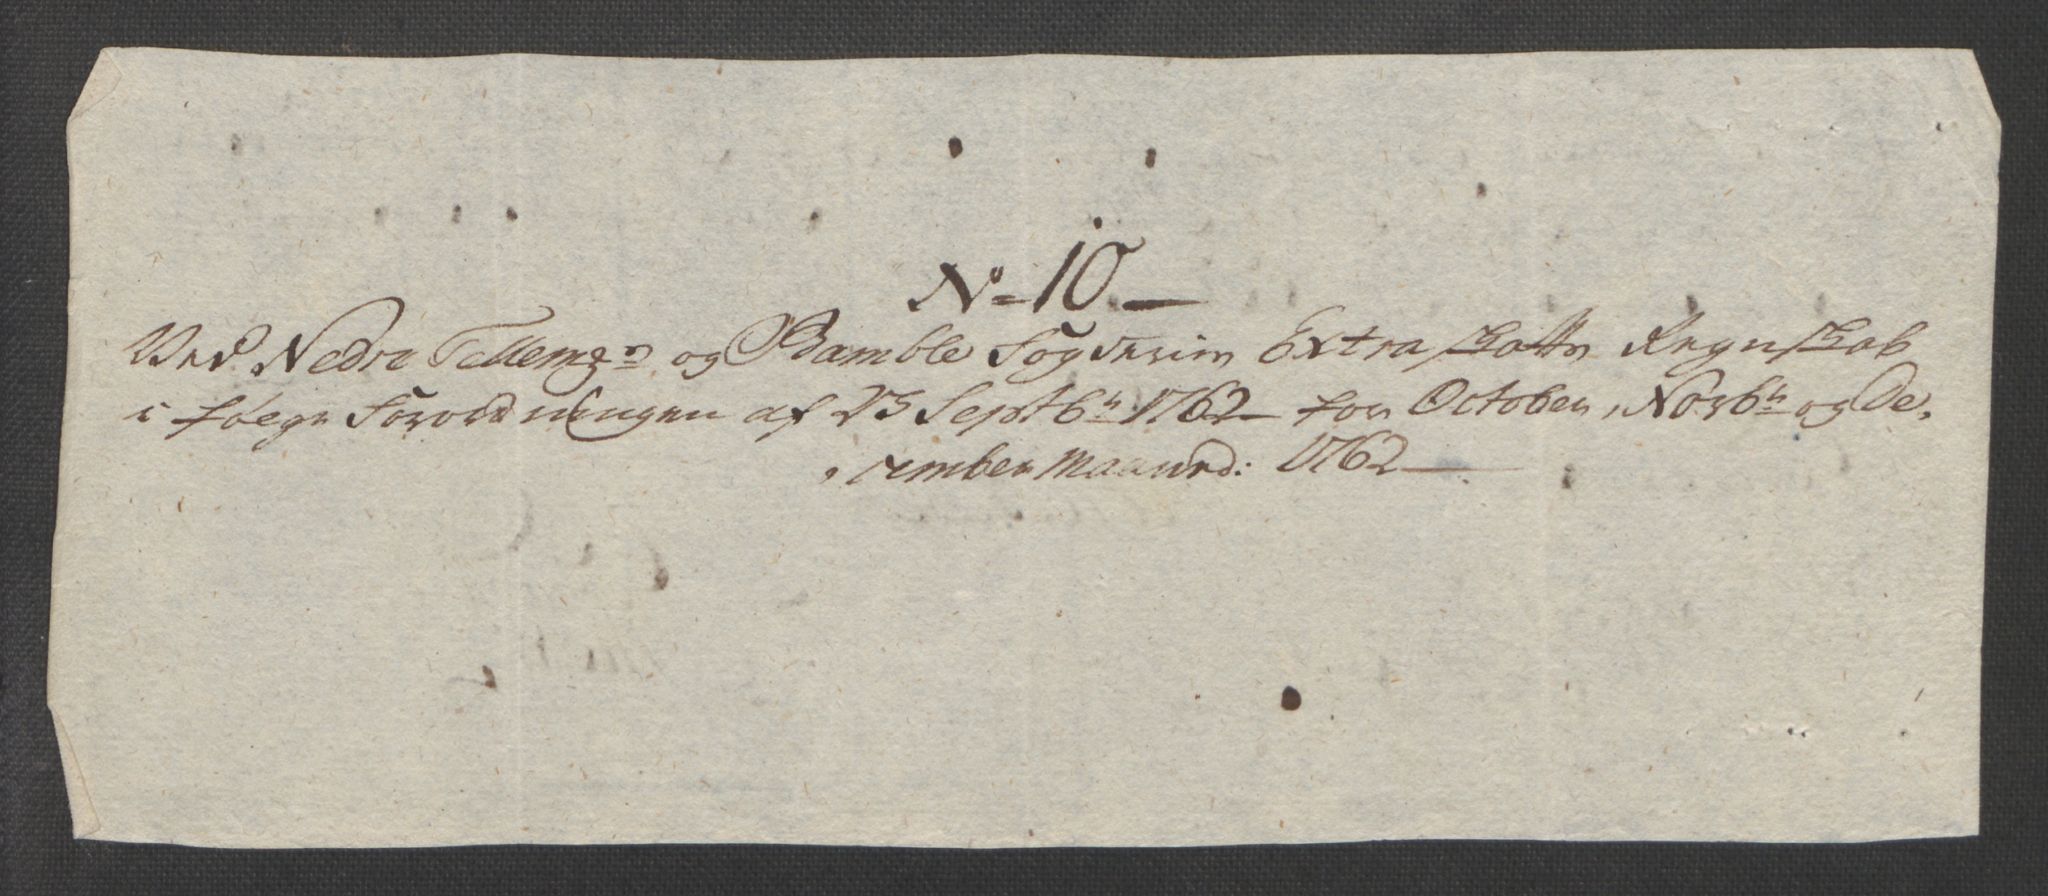 No = 10 —
Ved Nedre Tellem: og Bamble Fogderies Extra Skatts Regnskab
i følge Forordningen af 23 Septbr 1762 for October, Novbr og De,
, cember Maaned: 1762 —